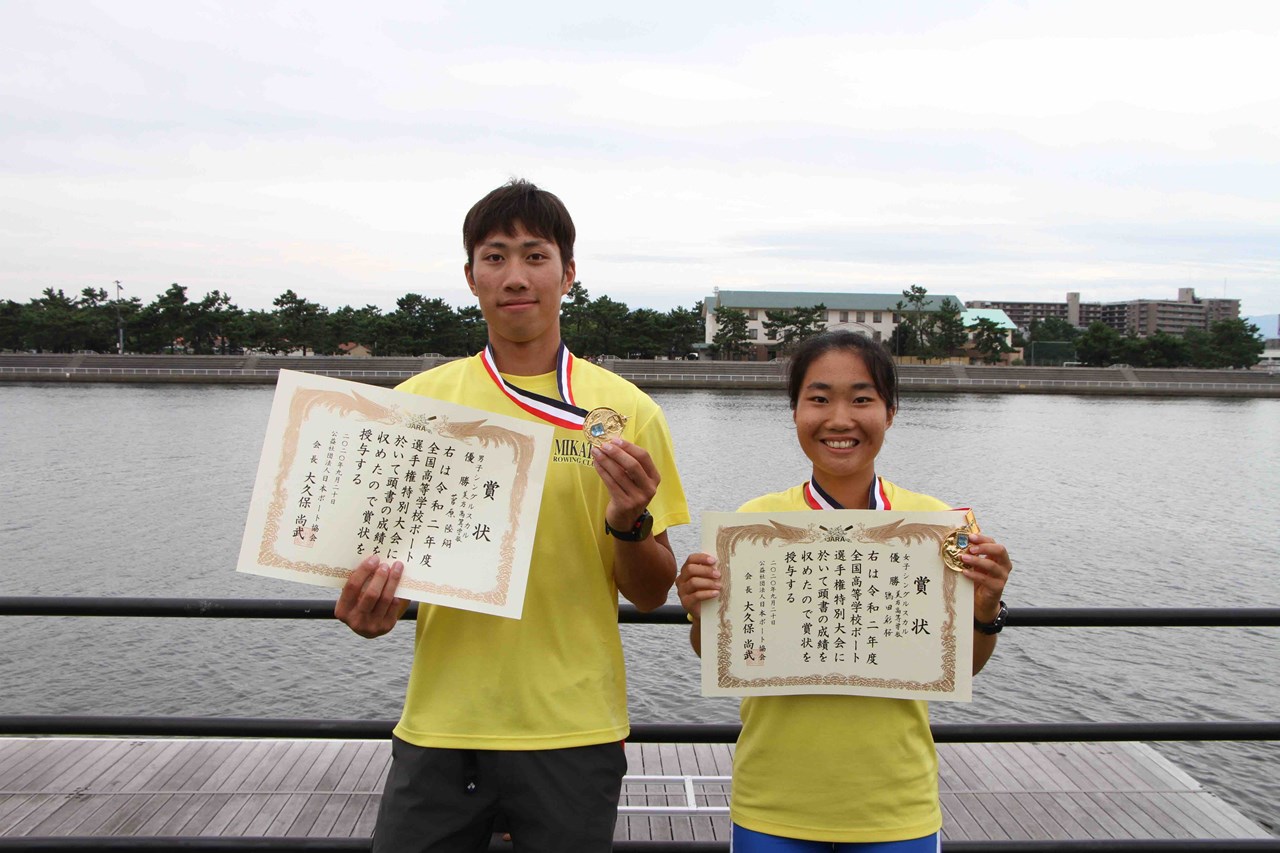 JARA
賞状
男子シングルスカル
優勝 美方高等学校
菅原 陸翔
右は令和二年度
全国高等学校ボート
選手権特別大会に
於いて頭書の成績を
収めたので賞状を
授与する
二〇二〇年九月二十日
公益社団法人日本ボート協会
会長 大久保尚武
MIKAT
ROWING CLU
JARA
賞状
女子シングルスカル
優勝 美方高等学校
右は令和二年度
全国高等学校ボート
選手権特別大会に
於いて頭書の成績を
収めたので賞状を
授与する
二〇二〇年九月二十日
公益社団法人日本ボート協会
会長 大久保尚武